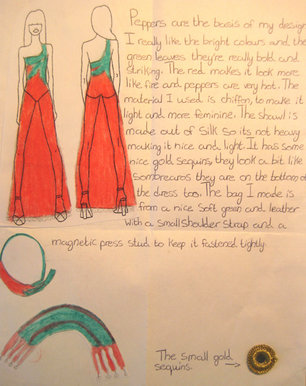 Peppers are the basis of my design
I really like the bright colours and the
green leaves they're really bold and
striking. The red makes it look more
like fire and peppers are very hot. The
material I used is chiffon, to make it
light and more feminine. The shawl is
made out of Silk so its not heavy
making it nice and light. It has some
nice gold sequins, they look a bit like
Sombrearos they are on the bottom of
the dress too. The bag I made is
from a nice soft green and leather
with a small shoulder strap and a
magnetic press stud to keep it fastened tightly.
The small gold
sequins. →